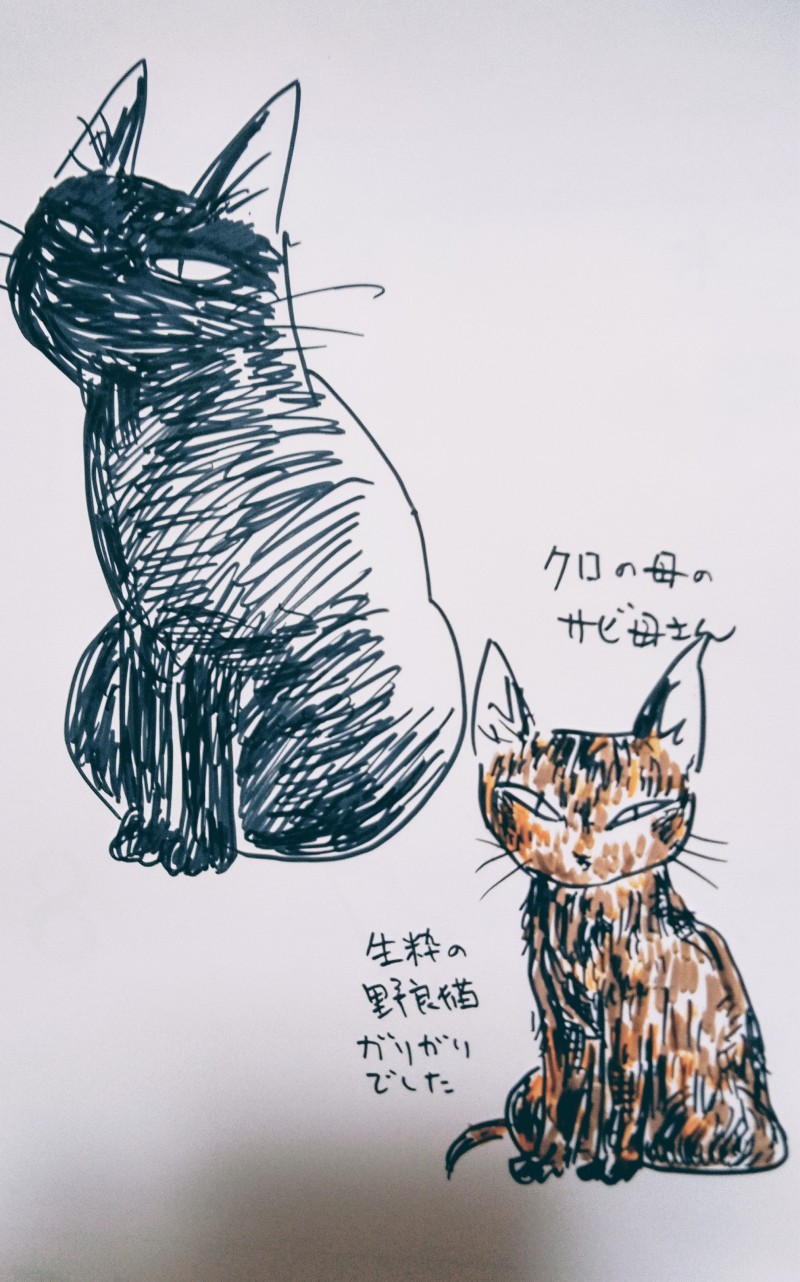 クロの母の
サビ母さん
生粋の
野良猫
がりがり
でした